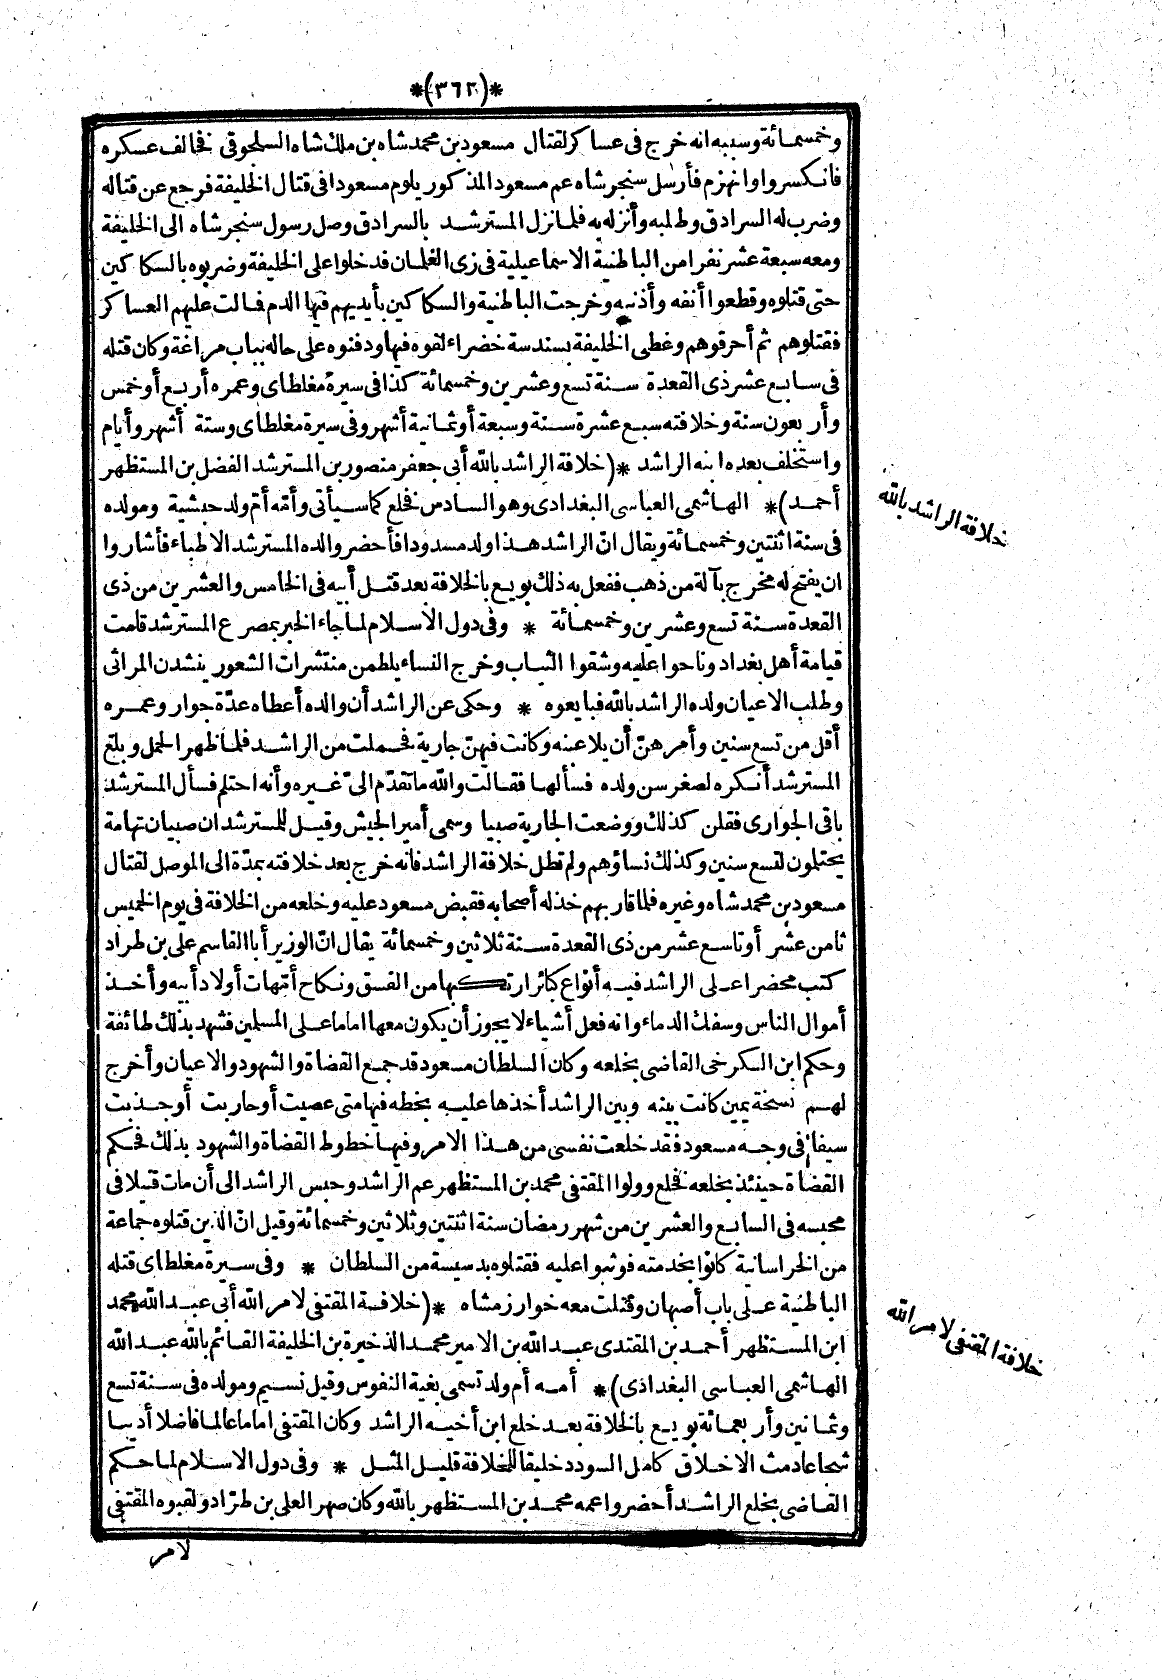 *(٣٦٢)*
وخمسمائة وسببه انه خرج فى عساكر لقتال مسعود بن محمد شاه بن ملك شاه السلجوقى فخالف عسكره
فانكسروا وانهزم فأرسل سنجر شاه عم مسعود المذكور يلوم مسعودا فى قتال الخليفة فرجع عن قتاله
وضرب له السرادق وطلبه وأنزله به فلما نزل المسترشد بالسرادق وصل رسول سنجر شاه الى الخليفة
ومعه سبعة عشر نفرا من الباطنية الاسماعيلية فى زى الغلمان فدخلوا على الخليفة وضربوه بالسكاكين
حتى قتلوه وقطعوا أنفه وأذنيه وخرجت الباطنية والسكاكين بأيديهم فيها الدم فمالت عليهم العساكر
فقتلوهم ثم أحرقوهم وغطى الخليفة بسندسة خضراء لفوه فيها ودفنوه على حاله بباب مراغة وكان قتله
فى سابع عشر ذى القعدة سنة تسع وعشرين وخمسمائة كذا فى سيرة مغلطاى وعمره أربع أو خمس
وأربعون سنة وخلافته سبع عشرة سنة وسبعة أو ثمانية أشهر وفى سيرة مغلطاى وستة أشهر وأيام
واستخلف بعده ابنه الراشد *(خلافة الراشد بالله أبى جعفر منصور بن المسترشد الفضل بن المستظهر
أحمد)* الهاشمى العباسى البغدادى وهو السادس فخلع كما سيأتى وأمّه أمّ ولد حبشية ومولده
فى سنة اثنتين وخمسمائة ويقال انّ الراشد هذا ولد مسدودا فأحضر والده المسترشد الاطباء فأشاروا
ان يفتح له مخرج بآلة من ذهب ففعل به ذلك بويع بالخلافة بعد قتل أبيه فى الخامس والعشرين من ذى
القعدة سنة تسع وعشرين وخمسمائة * وفى دول الاسلام لما جاء الخبر بمصرع المسترشد قامت
قيامة أهل بغداد وناحوا عليه وشقوا الثياب وخرج النساء يلطمن منتشرات الشعور ينشدن المراثى
وطلب الاعيان ولده الراشد بالله فبايعوه * وحكى عن الراشد أن والده أعطاه عدّة جوار وعمره
أقل من تسع سنين وأمرهنّ أن يلاعبنه وكانت فيهنّ جارية فحملت من الراشد فلما ظهر الحمل وبلغ
المسترشد أنكره لصغر سن ولده فسألها فقالت والله ما تقدّم الىّ غيره وأنه احتلم فسأل المسترشد
باقى الجوارى فقلن كذلك ووضعت الجارية صبيا وسمى أمير الجيش وقيل للمسترشد ان صبيان تهامة
يحتلمون لتسع سنين وكذلك نساؤهم ولم تطل خلافة الراشد فانه خرج بعد خلافته بمدّة الى الموصل لقتال
مسعود بن محمد شاه وغيره فلما قاربهم خذله أصحابه فقبض مسعود عليه وخلعه من الخلافة فى يوم الخميس
ثامن عشر أو تاسع عشر من ذى القعدة سنة ثلاثين وخمسمائة يقال انّ الوزير أبا القاسم على بن طراد
كتب محضرا على الراشد فيه أنواع كبائر ارتكبها من الفسق ونكاح أمّهات أولاد أبيه وأخذ
أموال الناس وسفك الدماء وانه فعل أشياء لا يجوز أن يكون معها اماما على المسلمين فشهد بذلك طائفة
وحكم ابن الكرخى القاضى بخلعه وكان السلطان مسعود قد جمع القضاة والشهود والاعيان وأخرج
لهم نسخة يمين كانت بينه وبين الراشد أخذها عليه بخطه فيها متى عصيت أو حاربت أو جذبت
سيفا فى وجه مسعود فقد خلعت نفسى من هذا الامر وفيها خطوط القضاة والشهود بذلك فحكم
القضاة حينئذ بخلعه فخلع وولوا المقتفى محمد بن المستظهر عم الراشد وحبس الراشد الى أن مات قتيلا فى
محبسه فى السابع والعشرين من شهر رمضان سنة اثنتين وثلاثين وخمسمائة وقيل انّ الذين قتلوه جماعة
من الخراسانية كانوا بخدمته فوثبوا عليه فقتلوه بدسيسة من السلطان * وفى سيرة مغلطاى قتله
الباطنية على باب أصبهان وقتلت معه خوارزمشاه *(خلافة المقتفى لامر الله أبى عبد الله محمد
ابن المستظهر أحمد بن المقتدى عبد الله بن الامير محمد الذخيرة بن الخليفة القائم بالله عبد الله
الهاشمى العباسى البغدادى)* أمه أم ولد تسمى بغية النفوس وقيل نسيم ومولده فى سنة تسع
وثمانين وأربعمائة بويع بالخلافة بعد خلع ابن أخيه الراشد وكان المقتفى اماما عالما فاضلا أديبا
شجاعا دمث الاخلاق كامل السودد خليقا للخلافة قليل المثل * وفى دول الاسلام لما حكم
القاضى بخلع الراشد أحضروا عمه محمد بن المستظهر بالله وكان صهر العلى بن طرّاد ولقبوه المقتفى
لامر
خلافة الراشد بالله
خلافة المقتفى لامر الله